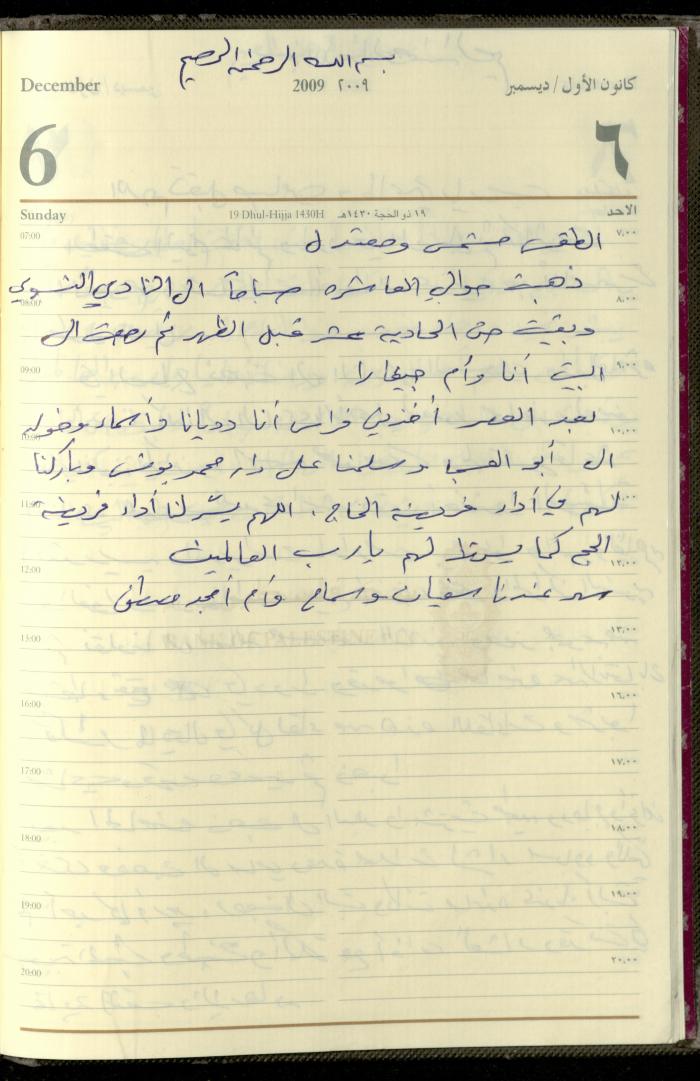 بسم الله الرحمن الرحيم
December 2009 ٢٠٠٩ كانون الأول / ديسمبر
6 ٦
Sunday 19 Dhul-Hijja 1430H ١٩ ذو الحجة ١٤٣٠هـ الاحد
07:00 ٧،٠٠
الطقس مشمس ومعتدل
ذهبت حوالي العاشره صباحاً الى النادي النسوي
08:00 ٨،٠٠
وبقيت حتى الحادية عشر قبل الظهر ثم رجعت الى
09:00 ٩،٠٠
البيت أنا وأم جيفارا
بعد العصر أخذني فراس أنا وديانا وأسماء وخوله
10:00 ١٠،٠٠
الى أبو وسلمنا على دار محمد يونس وباركنا
11:00 ١١،٠٠
لهم في أداء فريضة الحاج، اللهم يسّر لنا أداء فريضة
الحج كما يسرتها لهم يا رب العالمين
12:00 ١٢،٠٠
سهر عندنا سفيان وسماح وأم أمجد مصطفى
15:00 ١٣،٠٠
16:00 ١٦،٠٠
17:00 ١٧،٠٠
18:00 ١٨،٠٠
19:00 ١٩،٠٠
20:00 ٢٠،٠٠